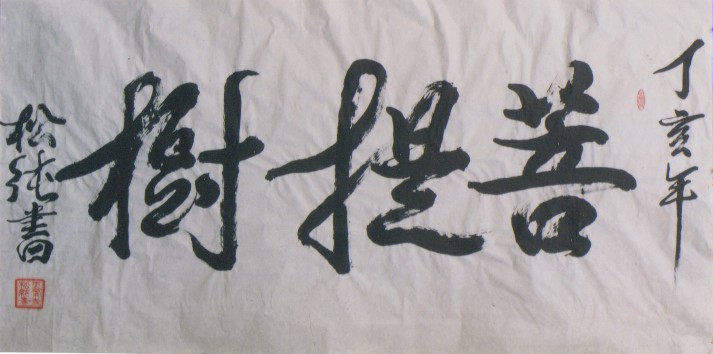 丁亥年
菩提樹
松德書